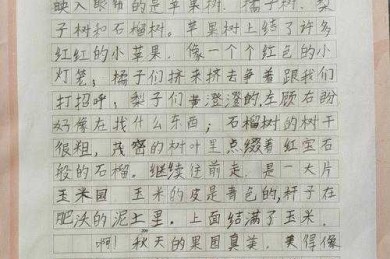 映入眼帘的是苹果树、橘子树、梨
子树和石榴树。苹果树上结了许多
红红的小苹果,像一个个红色的小
灯笼;橘子们挤来挤去争着跟我们
打招呼;梨子们黄澄澄的,左顾右盼
好像在找什么东西;石榴树的树干
很粗,茂密的树叶里点缀着红宝石
般的石榴。继续往前走,是一大片
玉米国,玉米的皮是青色的,杆子在
肥沃的泥土里。上面结满了玉米。
啊!秋天的果园真美,美得像